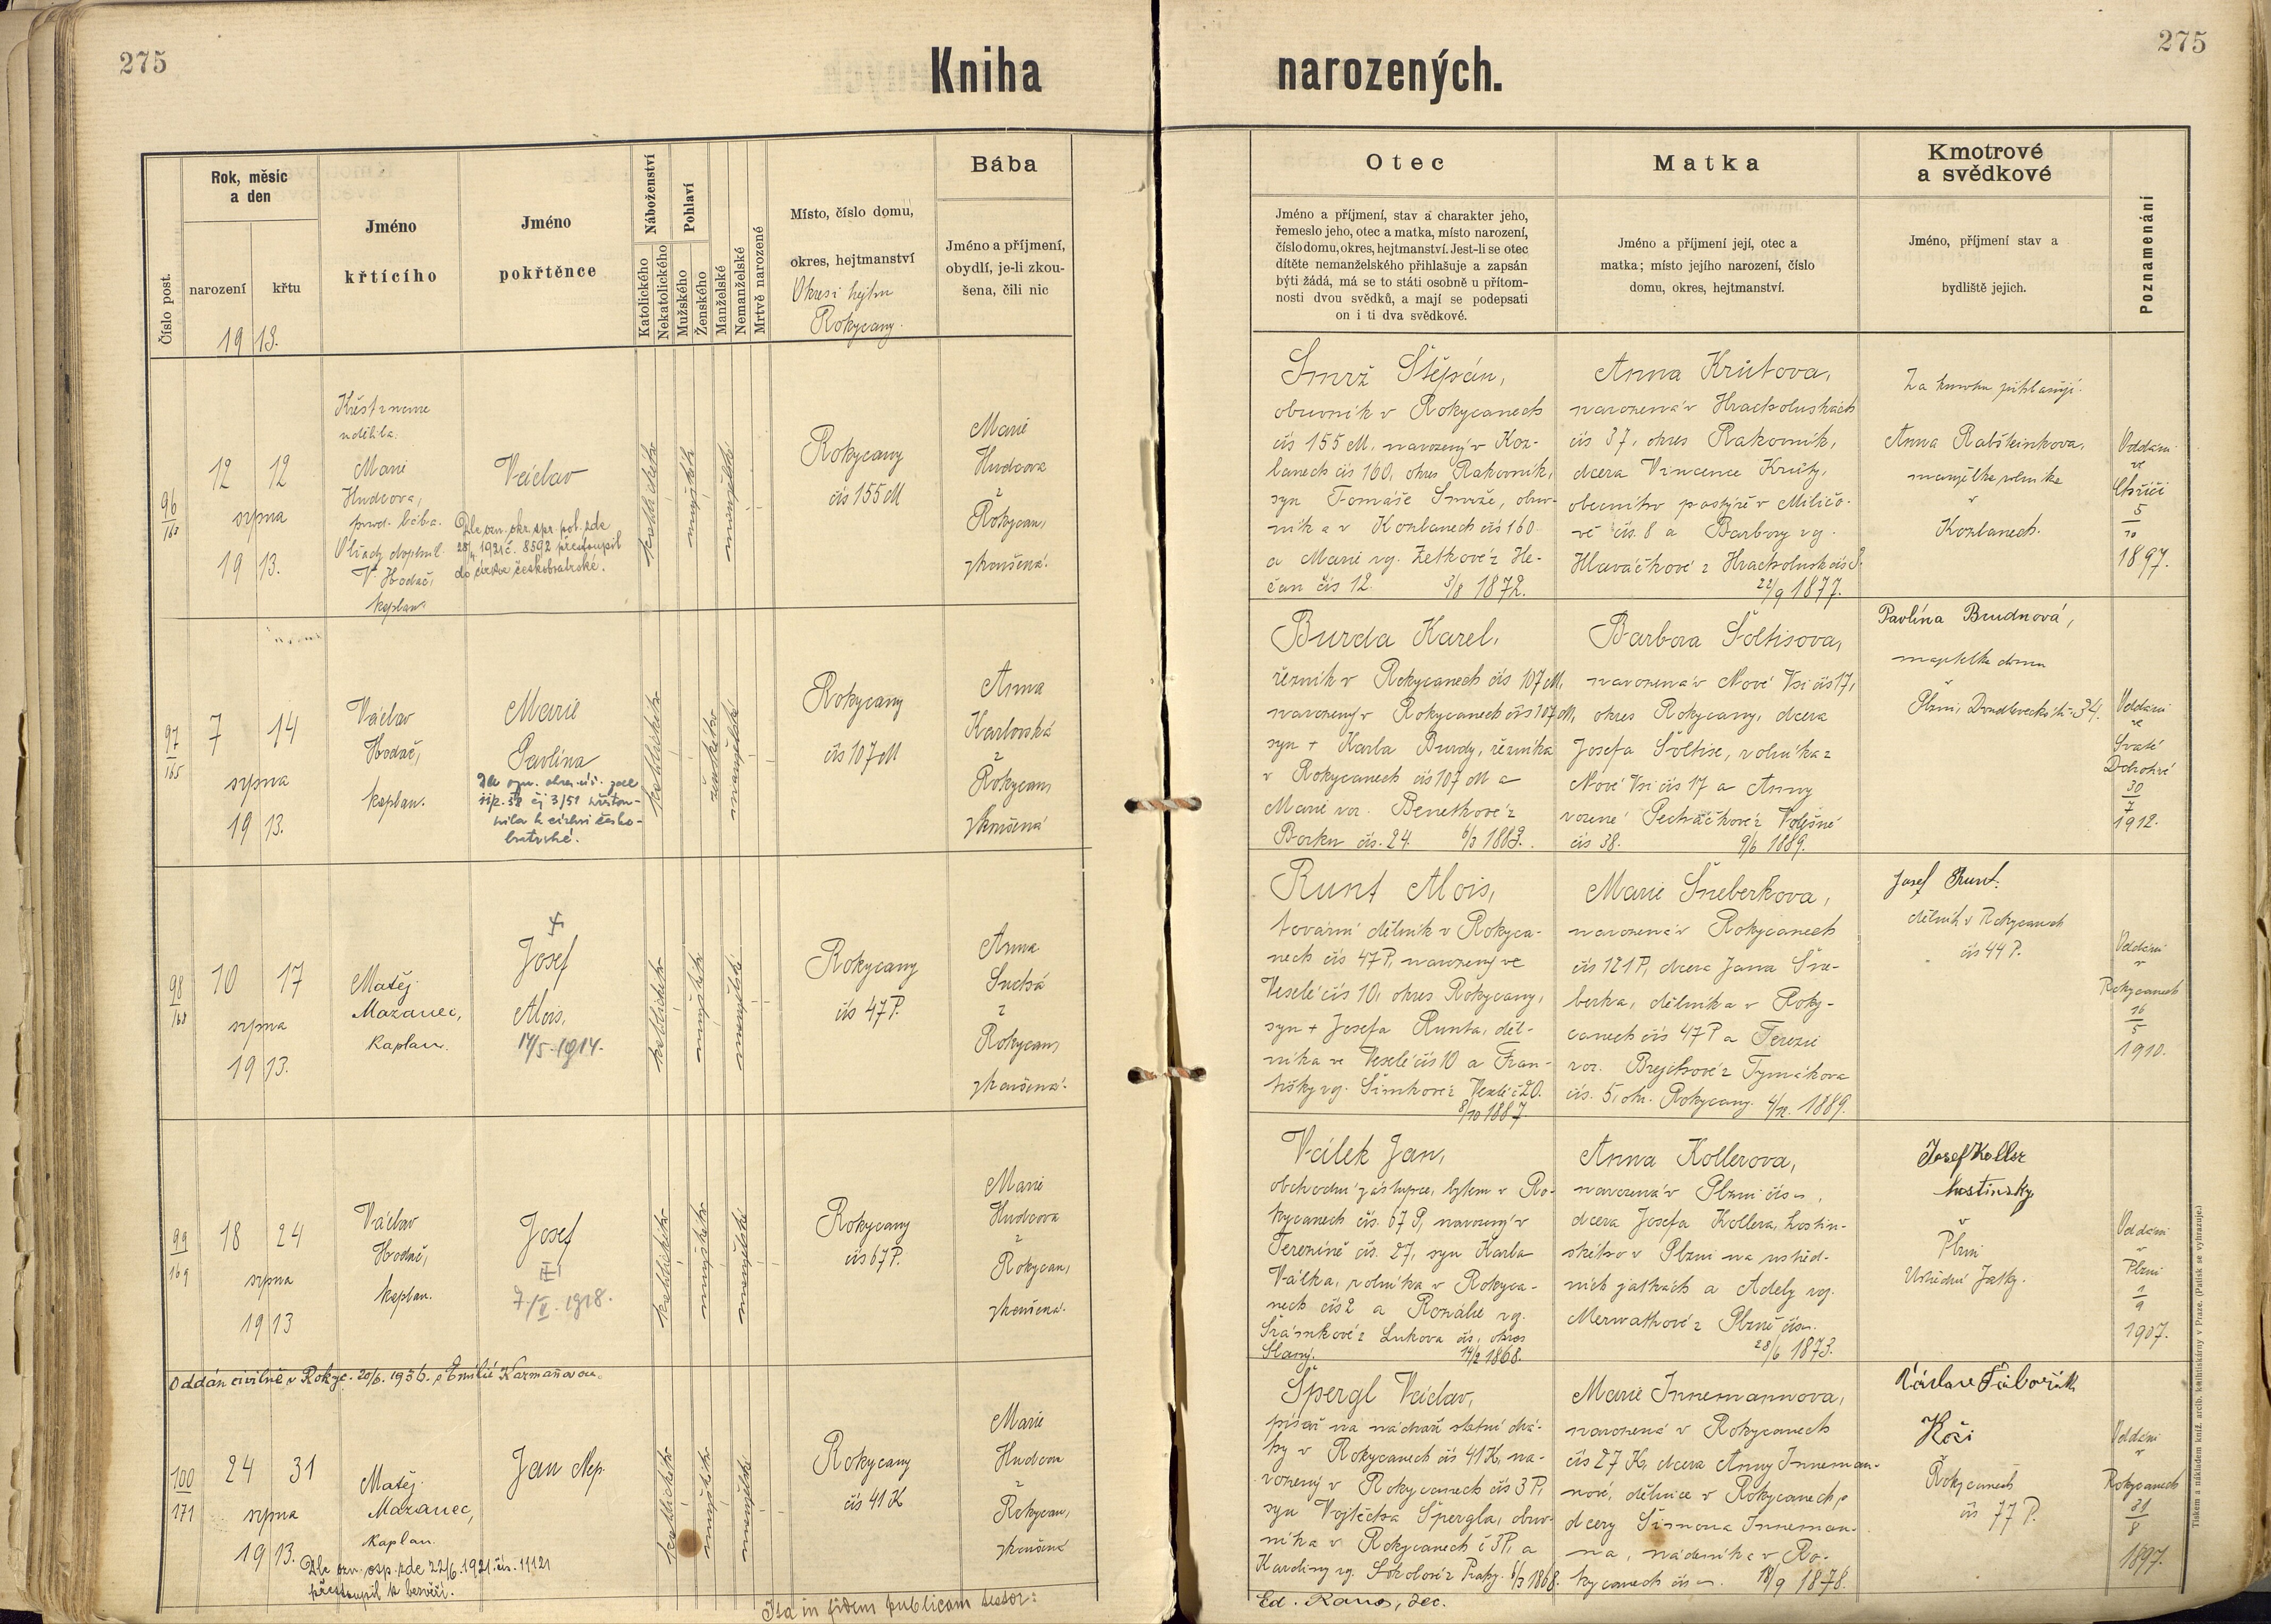 275
275
Kniha
narozených.
Číslo post.
Rok, měsíc
a den
narození
křtu
1913.
Jméno
křtícího
Jméno
pokřtěnce
Náboženství
Katolického
Nekatolického
Pohlaví
Mužského
Ženského
Manželské
Nemanželské
Mrtvě narozené
Místo, číslo domu,
okres, hejtmanství
Okres i hejtm
Rokycany.
Bába
Jméno a příjmení,
obydlí, je-li zkou-
šena, čili nic
Otec
Jméno a příjmení, stav a charakter jeho,
řemeslo jeho, otec a matka, místo narození,
číslo domu, okres, hejtmanství. Jest-li se otec
dítěte nemanželského přihlašuje a zapsán
býti žádá, má se to státi osobně u přítom-
nosti dvou svědků, a mají se podepsati
on i ti dva svědkové.
Matka
Jméno a příjmení její, otec a
matka; místo jejího narození, číslo
domu, okres, hejtmanství.
Kmotrové
a svědkové
Jméno, příjmení stav a
bydliště jejich.
Poznamenání
96
163
12 12
srpna
1913.
Křest z nouze
udělila
Marie
Hudcova,
porod. bába.
Obřady doplnil
V. Hodač,
kaplan.
Václav
Dle ozn. okr. spr. pol. zde
1921 č. 8592 přestoupil
do církve českobratrské.
katolického
mužského
manželské
Rokycany
čís 155 M
Marie
Hudcova
z
Rokycan,
zkoušená.
Smrž Štěpán,
obuvník v Rokycanech
čís 155 M. narozený v Koz-
lanech čís 160, okres Rakovník,
syn Tomáše Smrže, obuv-
níka v Kozlanech čís 160
a Marie roz. Zetkové z He-
čan čís 12. 3/8 1872.
Anna Krůtova,
narozená v Hracholuskách
čís 37, okres Rakovník,
dcera Vincence Krůty,
obecního pastýře v Miličo-
vě čís. 8 a Barbory roz.
Hlaváčkové z Hracholusk čís
22/9 1877.
Za kmotra přihlašují
Anna Rabšteinkova,
manželka rolníka
v
Kozlanech.
Oddáni
ve
5
10
1897.
97
165
7 14
srpna
1913.
Václav
Hodač,
kaplan.
Marie
Pavlína
Dle ozn. okres. úř. zde
katolického
ženského
manželské
Rokycany
čís 107 M
Anna
Karlovská
z
Rokycan,
zkoušená
Burda Karel,
řezník v Rokycanech čís 107 M,
narozený v Rokycanech čís 107 M,
syn + Karla Burdy, řezníka
v Rokycanech čís 107 M a
Marie roz. Benetkové z
Borku čís. 24. 6/3 1883.
Barbora Šoltisova,
narozená v Nové Vsi čís 17,
okres Rokycany, dcera
Josefa Šoltise, rolníka z
Nové Vsi čís 17 a Anny
rozené Pecháčkové z Volešné
čís 38. 9/6 1889.
Pavlína Brudnová,
majitelka domu
v
Plzni, Doudlevecká tř. 34.
Oddáni
ve
Svaté
Dobrotivé
30
7
1912.
98
168
10 17
srpna
1913.
Matěj
Mazanec,
kaplan.
Josef
Alois,
14/5. 1914.
katolického
mužského
manželské
Rokycany
čís 47 P.
Anna
Suchá
z
Rokycan,
zkoušená.
Runt Alois,
tovární dělník v Rokyca-
nech čís 47 P, narozený ve
Veselé čís 10, okres Rokycany,
syn + Josefa Runta, děl-
níka ve Veselé čís 10 a Fran-
tišky roz. Šimkové z Veselé č 20.
8/10 1887
Marie Šneberkova,
narozená v Rokycanech
čís 121 P, dcera Jana Šne-
berka, dělníka v Roky-
canech čís 47 P a Terezie
roz. Brejchové z Tymákova
čís. 5, okr. Rokycany. 4/12. 1889.
Josef Runt.
dělník v Rokycanech
čís 44 P.
Oddáni
v
Rokycanech
16
5
1910.
99
169
18 24
srpna
1913
Václav
Hodač,
kaplan.
Josef
7./II. 1918.
katolického
mužského
manželské
Rokycany
čís 67 P.
Marie
Hudcova
z
Rokycan,
zkoušená.
Válek Jan,
obchodní zástupce, bytem v Ro-
kycanech čís. 67 P, narozený v
Terezíně čís. 27, syn Karla
Válka, rolníka v Rokyca-
nech čís 2 a Rozálie roz.
Šrámkové z Lukova čís, okres
Slaný. 14/2 1868.
Anna Kollerova,
narozená v Plzni čís –,
dcera Josefa Kollera, hostin-
ského v Plzni na ústřed-
ních jatkách a Adely roz.
Merwathové z Plzně čís –.
28/6 1873.
Josef Koller
hostinský
v
Plzni
Ústřední Jatky.
Oddáni
v
Plzni
1
9
1907.
Oddán civilně v Rokyc. 20/6. 1936. s Emilií Karmaňovou.
100
171
24 31
srpna
1913.
Matěj
Mazanec,
kaplan.
Jan Nep.
Dle ozn. osp. zde 22/6. 1921. čís. 11121
přestoupil k bezvěří.
katolického
mužského
manželské
Rokycany
čís 41 K
Marie
Hudcova
z
Rokycan,
zkoušená
Špergl Václav,
písař na nádraží státní drá-
hy v Rokycanech čís 41 K, na-
rozený v Rokycanech čís 3 P,
syn Vojtěcha Špergla, obuv-
níka v Rokycanech č 3 P, a
Karoliny roz. Sokolové z Prahy. 6/3 1868.
Marie Innemannova,
narozená v Rokycanech
čís 27 K, dcera Anny Inneman-
nové, dělnice v Rokycanech,
dcery Šimona Inneman-
na, nádeníka v Ro-
kycanech čís –. 18/9 1878.
Václav Táborský
Kočí
Rokycanech
čís 77 P.
Oddáni
v
Rokycanech
31
8
1897.
Ita in fidem publicam testor:
Ed. Raus, dec.
Tiskem a nákladem kníž. arcib. knihtiskárny v Praze. (Patisk se vyhrazuje.)